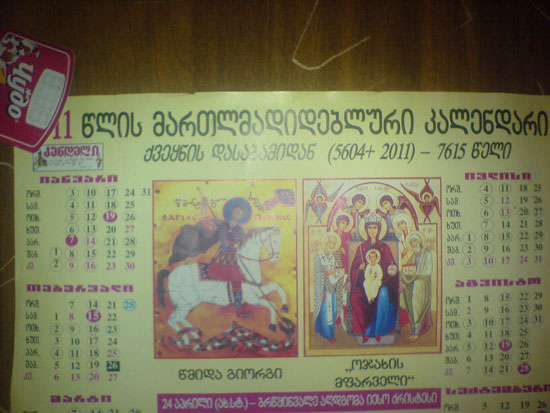 11 წლის მართლმადიდებლური კალენდარი
ქვეყნის დასაბამიდან (5604+ 2011) – 7615 წელი
იანვარი
ორშ. 3 10 17 24 31
სამ. 4 11 18 25
ოთხ. 5 12 19 26
ხუთ. 6 13 20 27
პარ. 7 14 21 28
შაბ. 1 8 15 22 29
კვ. 2 9 16 23 30
თებერვალი
ორშ. 7 14 21 28
სამ. 1 8 15 22
ოთხ. 2 9 16 23
ხუთ. 3 10 17 24
პარ. 4 11 18 25
შაბ. 5 12 19 26
კვ. 6 13 20 27
მარტი
წმიდა გიორგი
„ოჯახის
მფარველი"
24 აპრილი (ახ.სტ.) – ბრწყინვალე აღდგომა იესო ქრისტესი
ივლისი
ორშ. 4 11 18 25
სამ. 5 12 19 26
ოთხ. 6 13 20 27
ხუთ. 7 14 21 28
პარ. 1 8 15 22 29
შაბ. 2 9 16 23 30
კვ. 3 10 17 24 31
აგვისტო
ორშ. 1 8 15 22 29
სამ. 2 9 16 23 30
ოთხ. 3 10 17 24 31
ხუთ. 4 11 18 25
პარ. 5 12 19 26
შაბ. 6 13 20 27
კვ. 7 14 21 28
სექტემბერი